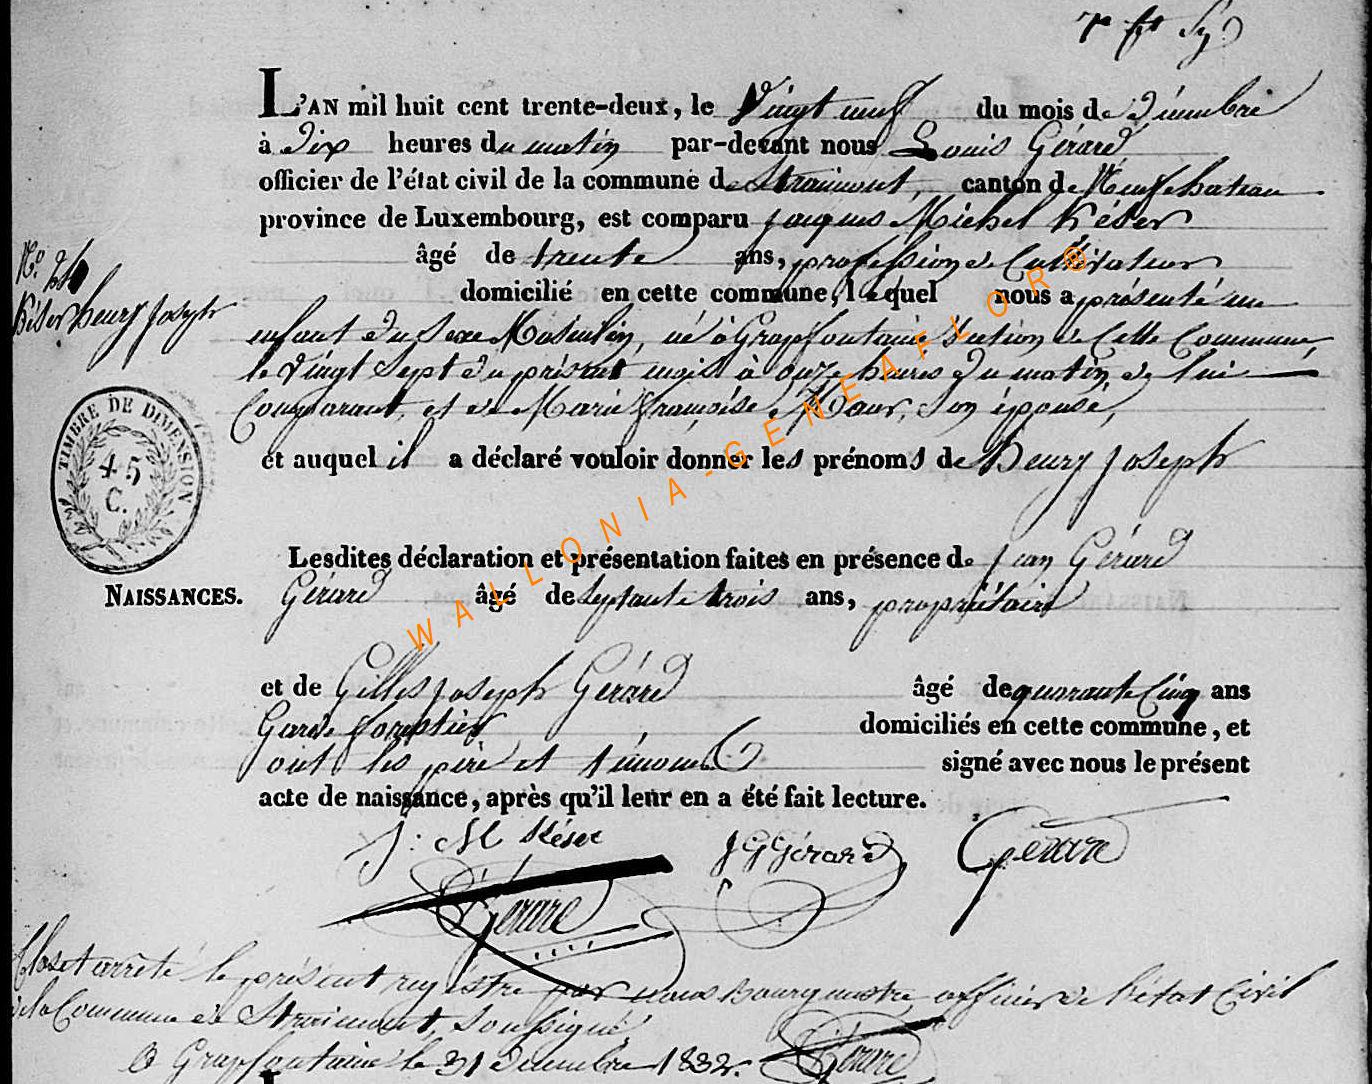 L'AN mil huit cent trente-deux, le Vingt neuf du mois de Décembre
à Dix heures du matin par-devant nous Louis Gérard
officier de l'état civil de la commune de Straimont, canton de Neufchateau
province de Luxembourg, est comparu Jacques Michel Késer
âgé de trente ans, profession de Cultivateur
domicilié en cette commune, lequel nous a présenté un
enfant du Sexe Masculin, né à Grapfontaine Section de Cette Commune,
le Vingt Sept du présent mois à onze heures du matin de lui
Comparant, et de Marie françoise Adour, Son épouse,
et auquel il a déclaré vouloir donner les prénoms de Henry Joseph
N.º 26
Késer henry Joseph
TIMBRE DE DIMENSION
45
C.
NAISSANCES.
Lesdites déclaration et présentation faites en présence de Jean Gérard
Gérard âgé de septante trois ans, propriétaire
et de Gilles Joseph Gérard âgé de quarante Cinq ans
Garde forestier domiciliés en cette commune, et
ont les père et témoins signé avec nous le présent
acte de naissance, après qu'il leur en a été fait lecture.
J: M Késer JGGérard Gérard
Gérard
Clos et arrêté le présent registre par nous Bourgmestre, officier de l'état Civil
de la Commune de Straimont, Soussigné
à Grapfontaine le 31 Décembre 1832. Gérard
WALLONIA-GENEAFLOR®